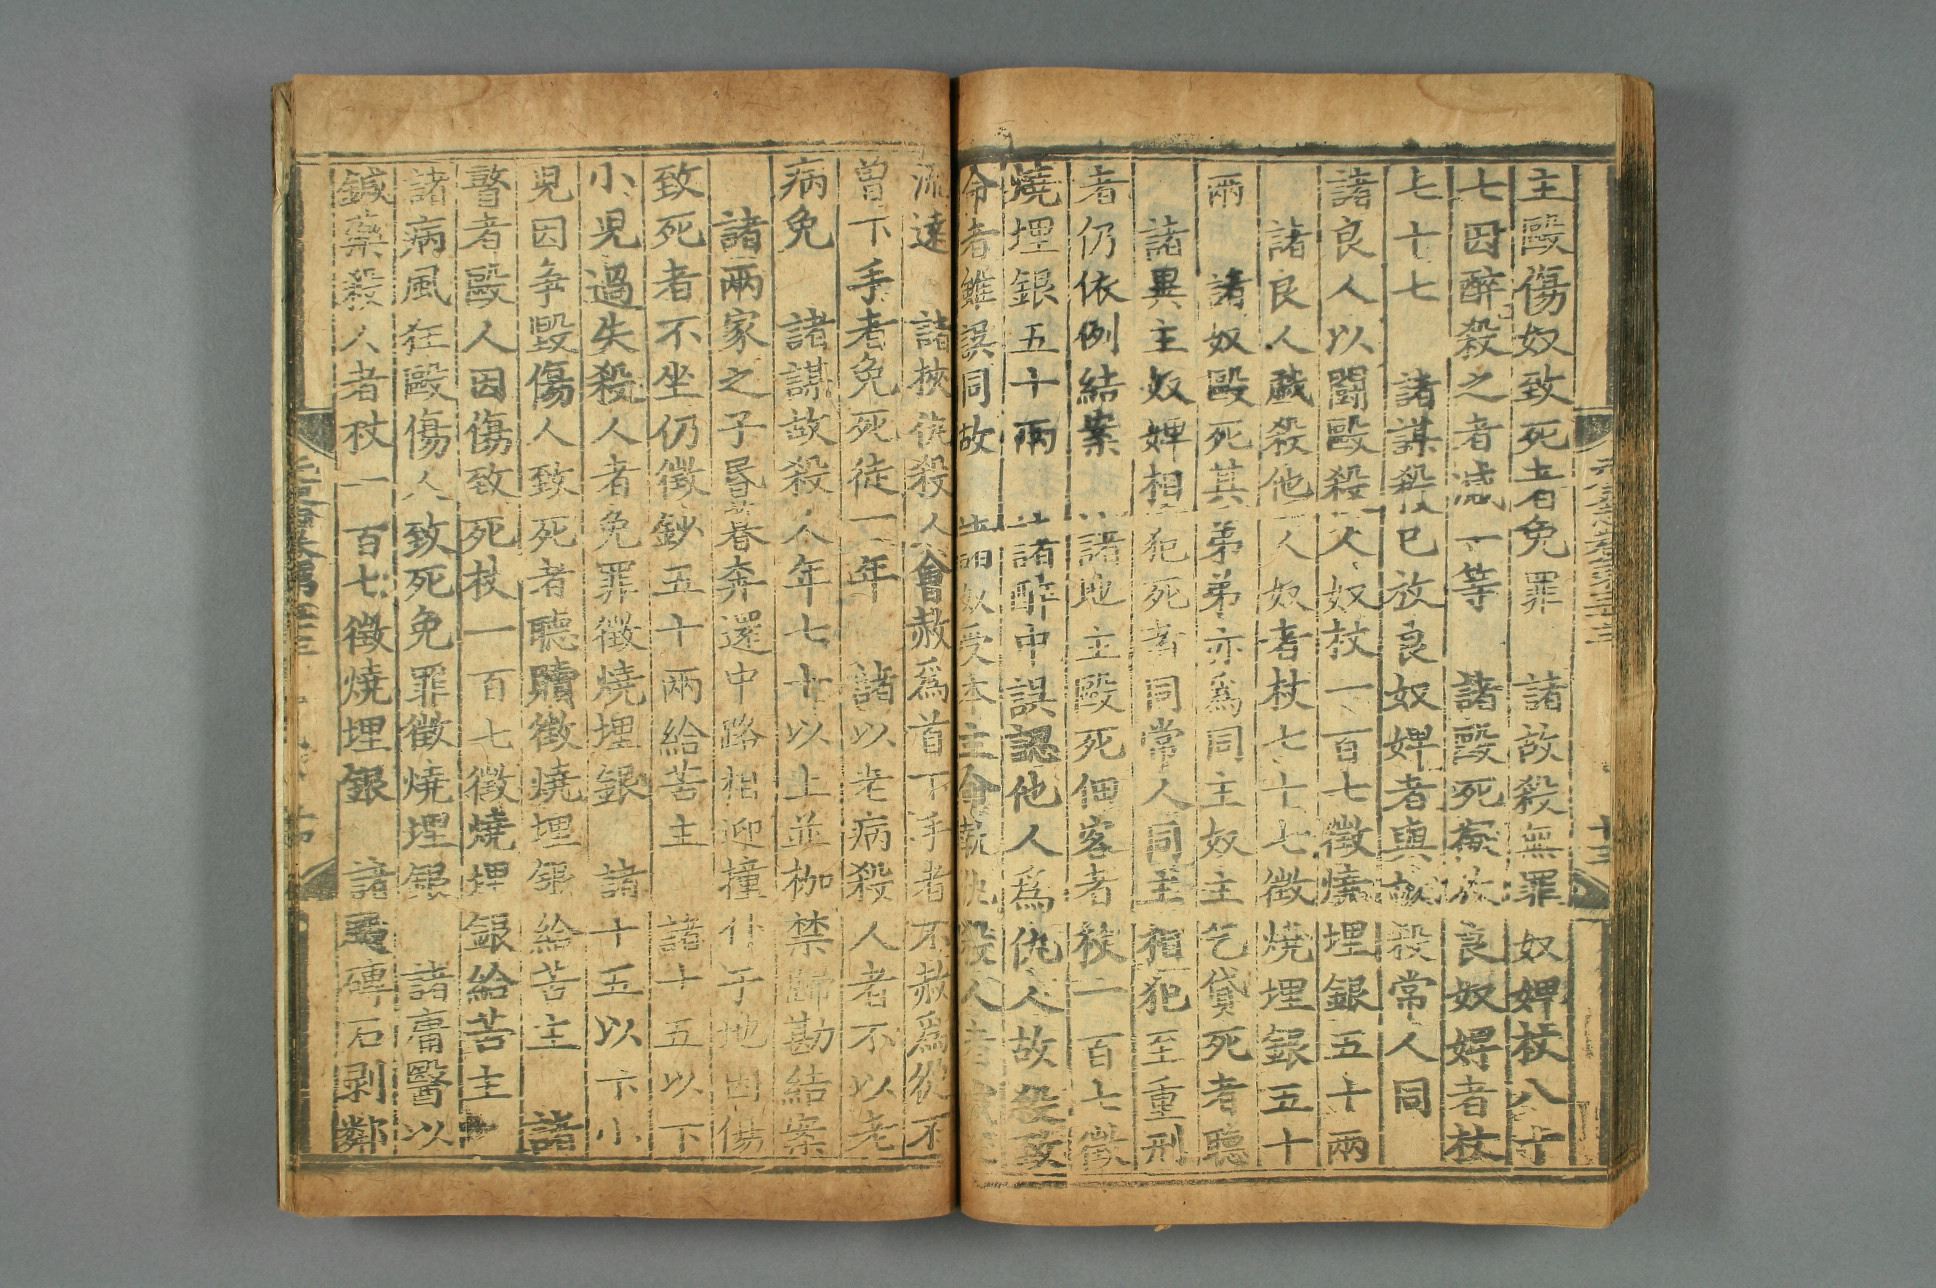 主毆傷奴致死者免罪　諸故殺無罪奴婢杖八十
七因醉殺之者減一等　諸毆死擬放良奴婢者杖
七十七　諸謀殺已放良奴婢者與故殺常人同
諸良人以鬭毆殺人奴杖一百七徵燒埋銀五十兩
諸良人戲殺他人奴者杖七十七徵燒埋銀五十
兩　諸奴毆死其弟弟亦爲同主奴主乞貸死者聽
諸異主奴婢相犯死者同常人同主相犯至重刑
者仍依例結案　諸地主毆死佃客者杖一百七徵
燒埋銀五十兩　諸醉中誤認他人爲仇人故殺致
命者雖誤同故　諸奴受本主命執仇殺人者
流遠　諸挾仇殺人會赦爲首下手者不赦爲從不
曾下手者免死徒一年　諸以老病殺人者不以老
病免　諸謀故殺人年七十以上並枷禁歸勘結案
諸兩家之子昏暮奔還中路相迎撞仆于地因傷
致死者不坐仍徵鈔五十兩給苦主　諸十五以下
小兒過失殺人者免罪徵燒埋銀　諸十五以下小
兒因争毀傷人致死者聽贖徵燒埋銀給苦主　諸
瞽者毆人因傷致死杖一百七徵燒埋銀給苦主
諸病風狂毆傷人致死免罪徵燒埋銀　諸庸醫以
鍼藥殺人者杖一百七徵燒埋銀　諸飛磚石剥鄰